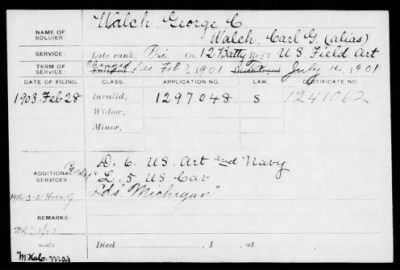 NAME OF SOLDIER: Walch, George C
Walch, Carl G. (alias)
SERVICE: Late rank, Pri Co. 12 Batty Reg't U.S. Field Art
TERM OF SERVICE: Feb 7, 1901 July 12, 1901
DATE OF FILING. CLASS. APPLICATION NO. LAW. CERTIFICATE NO.
1903 Feb 28 Invalid, 1297.048 S 1241062
Widow,
Minor,
ADDITIONAL SERVICES:
D. 6. U.S. Art and Navy
L. 5 U.S. Cav
"Michigan"
REMARKS:
Died , 1 , at